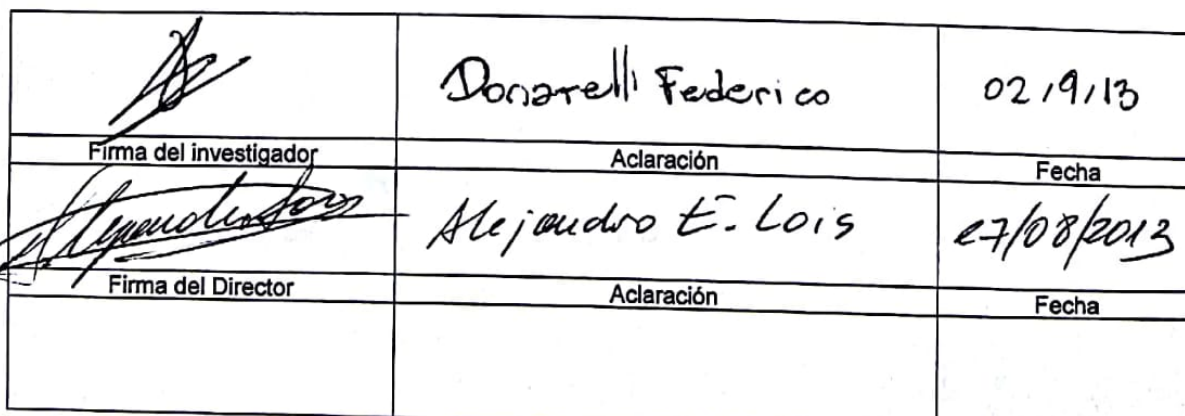 Donarelli Federico 02/9/13
Firma del investigador Aclaración Fecha
Alejandro Lois Alejandro E. Lois 27/08/2013
Firma del Director Aclaración Fecha